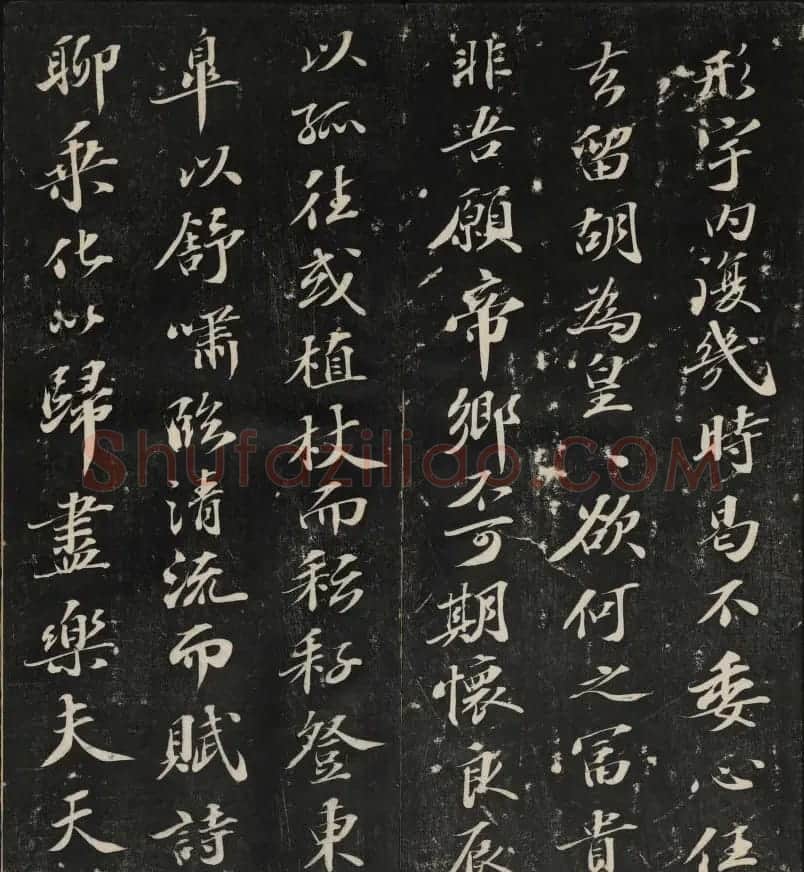 形宇内復幾時曷不委心任
去留胡為皇〻欲何之冨貴
非吾願帝鄉不可期懷良辰
以孤往或植杖而耘耔登東
皐以舒嘯臨清流而賦詩
聊乗化以歸盡樂夫天
Shufaziliao.COM